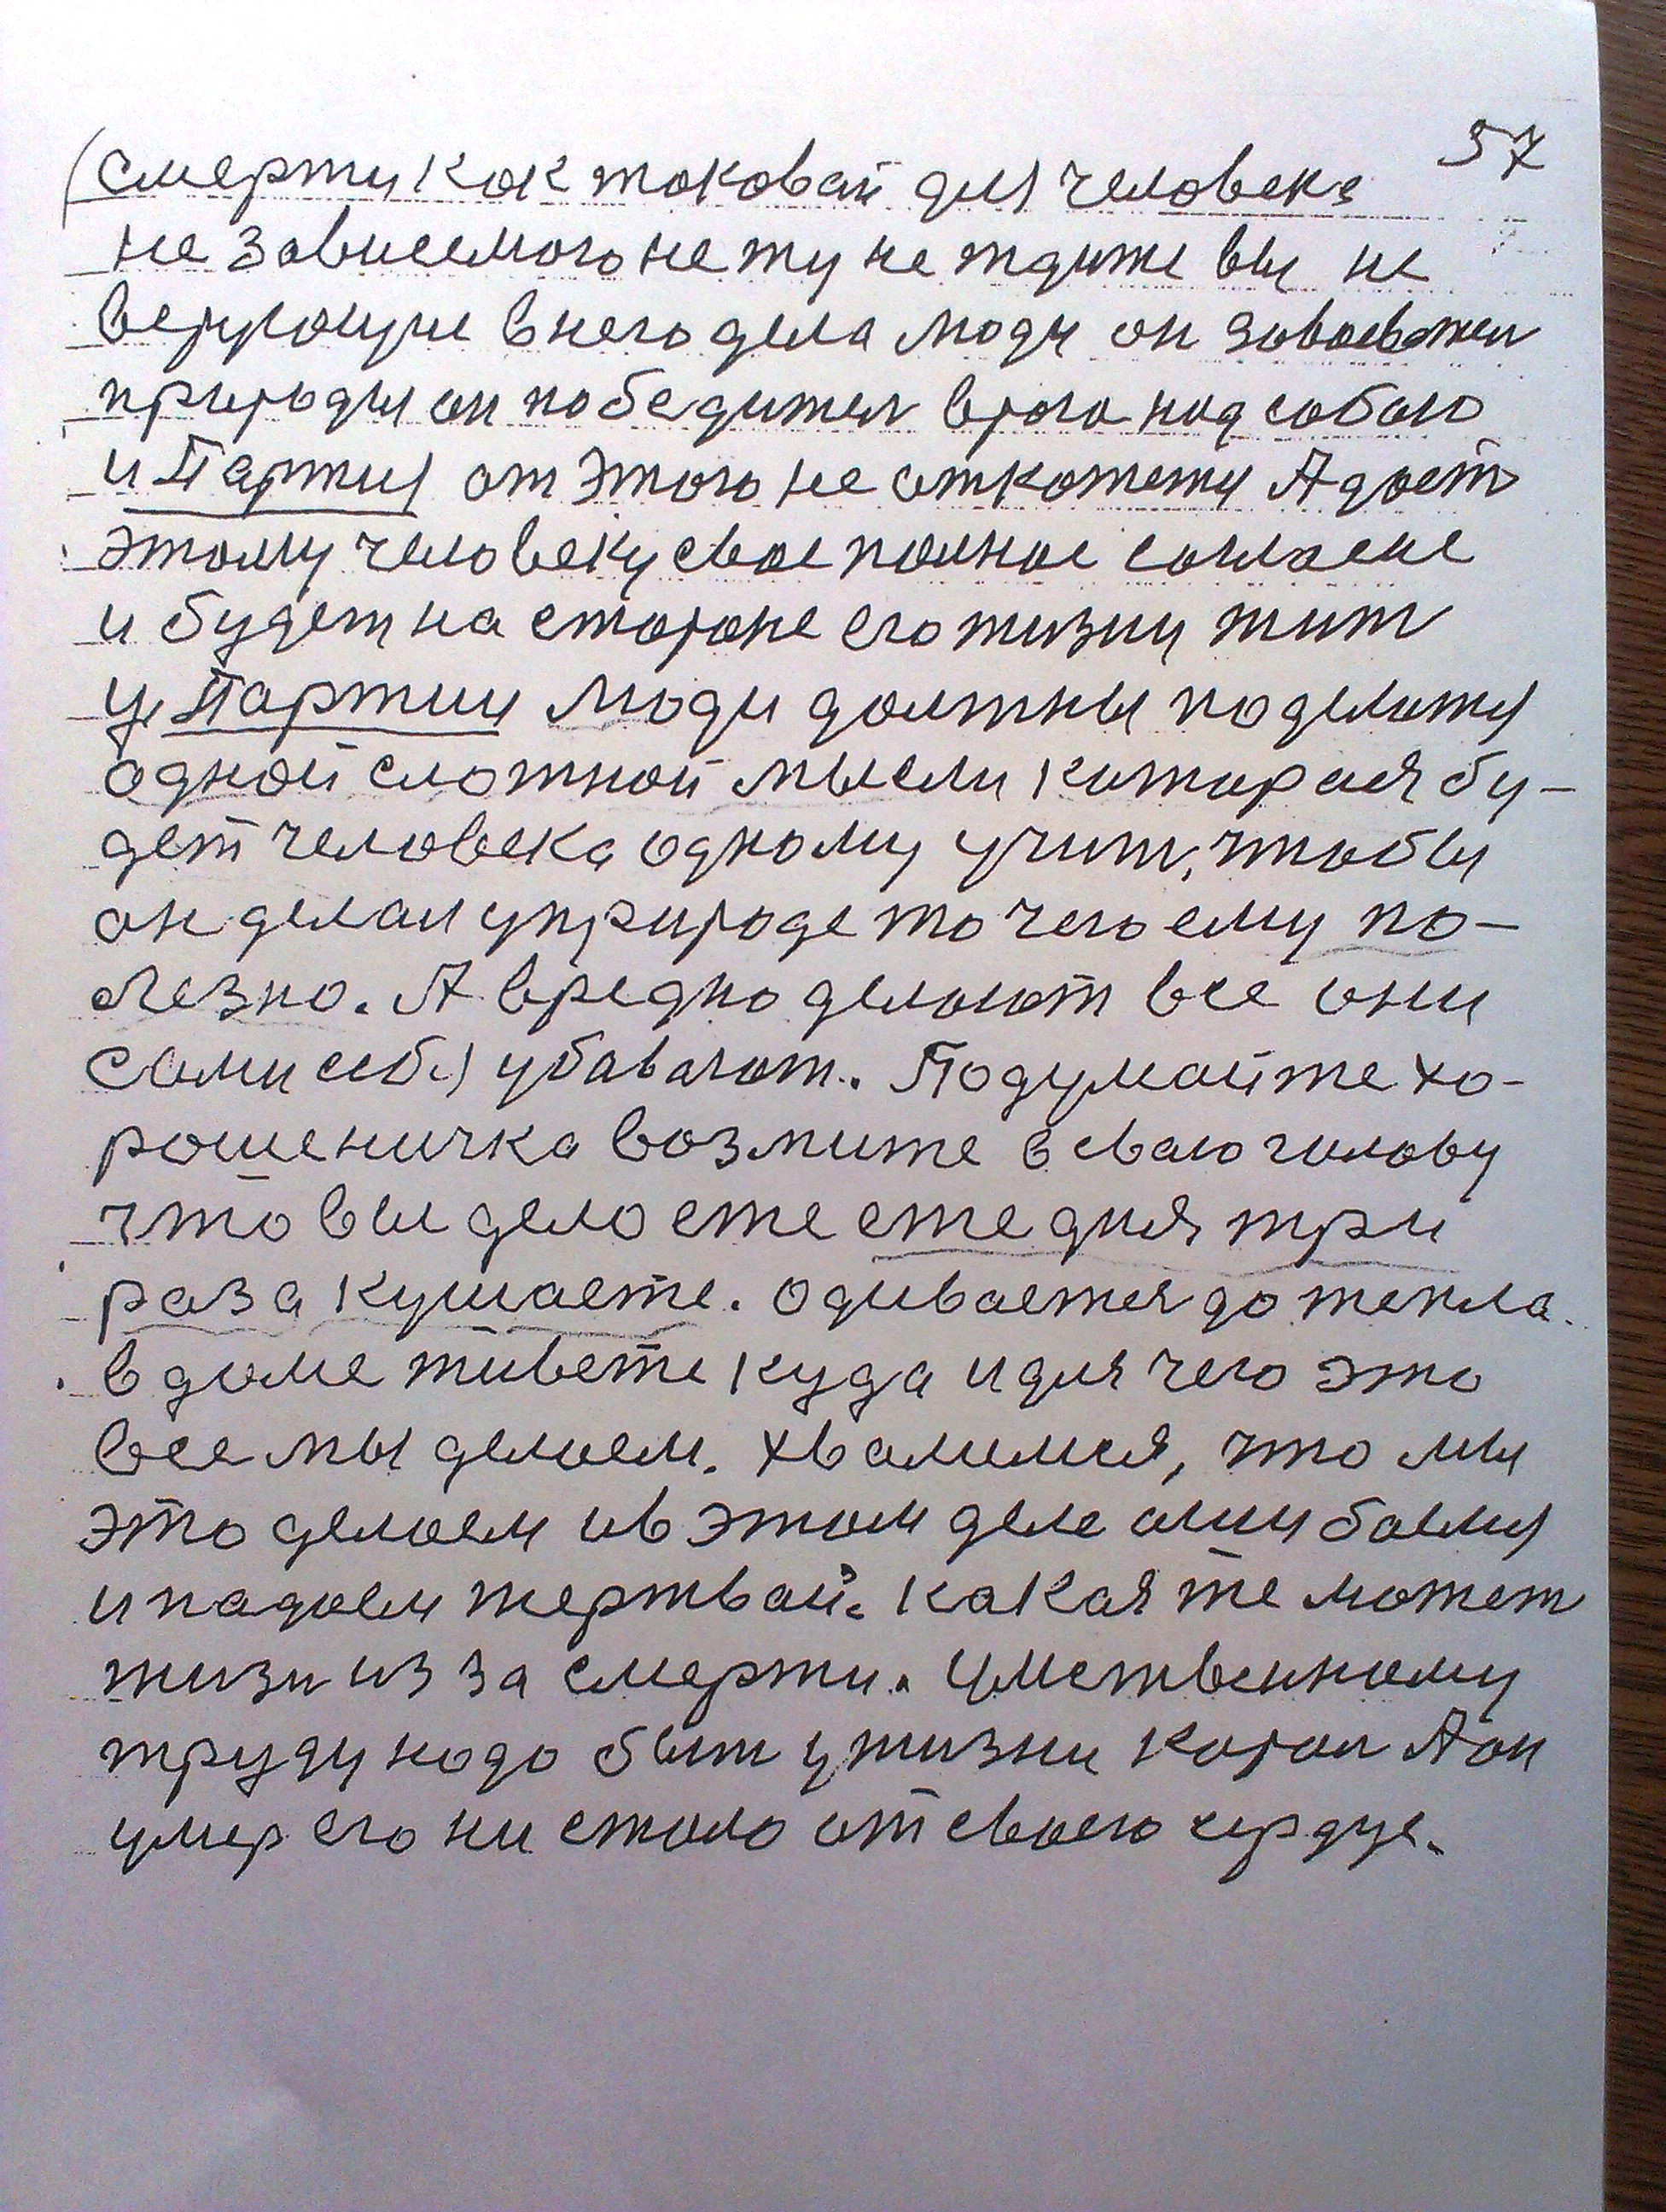 57
(смерти как таковай для человека
не зависемого нету не ждите вы не
верующие в него дела люди он завоеватель
природы он победител врага над собою
и Партия от этого не откажется А дает
этому человеку свое полное согласие
и будет на стороне его жизни жит
у Партии люди должны поделится
одной сложной мысли которая бу-
дет человека одному учит, чтобы
он делал у природе то чего ему по-
лезно. А вредно делают все они
сами себя убавляют. Подумайте хо-
рошеничка возмите в сваю голову
что вы делаете сте дня три
раза кушаете. Одивается до тепла.
в доме живете куда и для чего это
все мы делаем. хвалимся, что мы
это делаем и в этом деле ошибаемся
и падаем жертвай. какая же может
жизн из за смерти. Умственному
труду надо быт у жизни
А он
умер его ни стало от своего сердца.